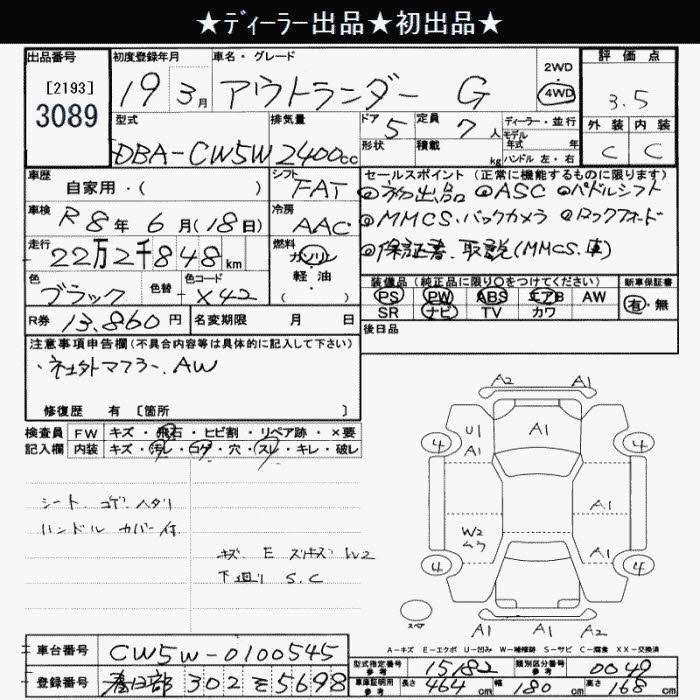 ★ディーラー出品★初出品★
出品番号 初度登録年月 車名・グレード 評価点
[2193]
3089
19年 3月 アウトランダー G
2WD
4WD
3.5
型式 排気量 ドア 定員 ディーラー・並行
モデル年式 年
外装 内装
DBA-CW5W 2400cc 5 7人
形状 積載 kg ハンドル 左・右
C C
車歴 シフト セールスポイント(正常に機能するものに限ります)
自家用・( ) FAT ◎初出品 ◎ASC ◎パドルシフト
車検 冷房
R8年6月(18日) AAC ◎MMCS.バックカメラ ◎ロックフォード
走行 燃料
22万2千848km ガソリン
軽・油
( )
◎保証書.取説(MMCS.車)
色 色替 色コード
ブラック X42
装備品(純正品に限り○をつけてください) 新車保証書
PS PW ABS エアB AW 有・無
SR ナビ TV カワ
R券 13,860円 名変期限 月 日
後日品
注意事項申告欄(不具合内容等は具体的に記入して下さい)
・社外マフラー.AW
修復歴 有 [箇所 ]
検査員 FW キズ・飛石・ヒビ割・リペア跡・×要
記入欄 内装 キズ・汚レ・コゲ・穴・スレ・キレ・破レ
シート コゲ.ヘタリ
ハンドル カバー付
キズ E スリキズ W2
下廻り S.C
A2 A1
4 U1 A1 4
A1
A1
W2
ムラ A1
4 4
スペア
A1 A1 A2
A-キズ E-エクボ U-凹み W-補修跡 S-サビ C-腐食 XX-交換済
車台番号 CW5W-0100545
型式指定番号 参考 15182 類別区分番号 参考 0049
登録番号 春日部 302 そ 5698
車庫証明用 参考 長さ 464cm 幅 180cm 高さ 168cm